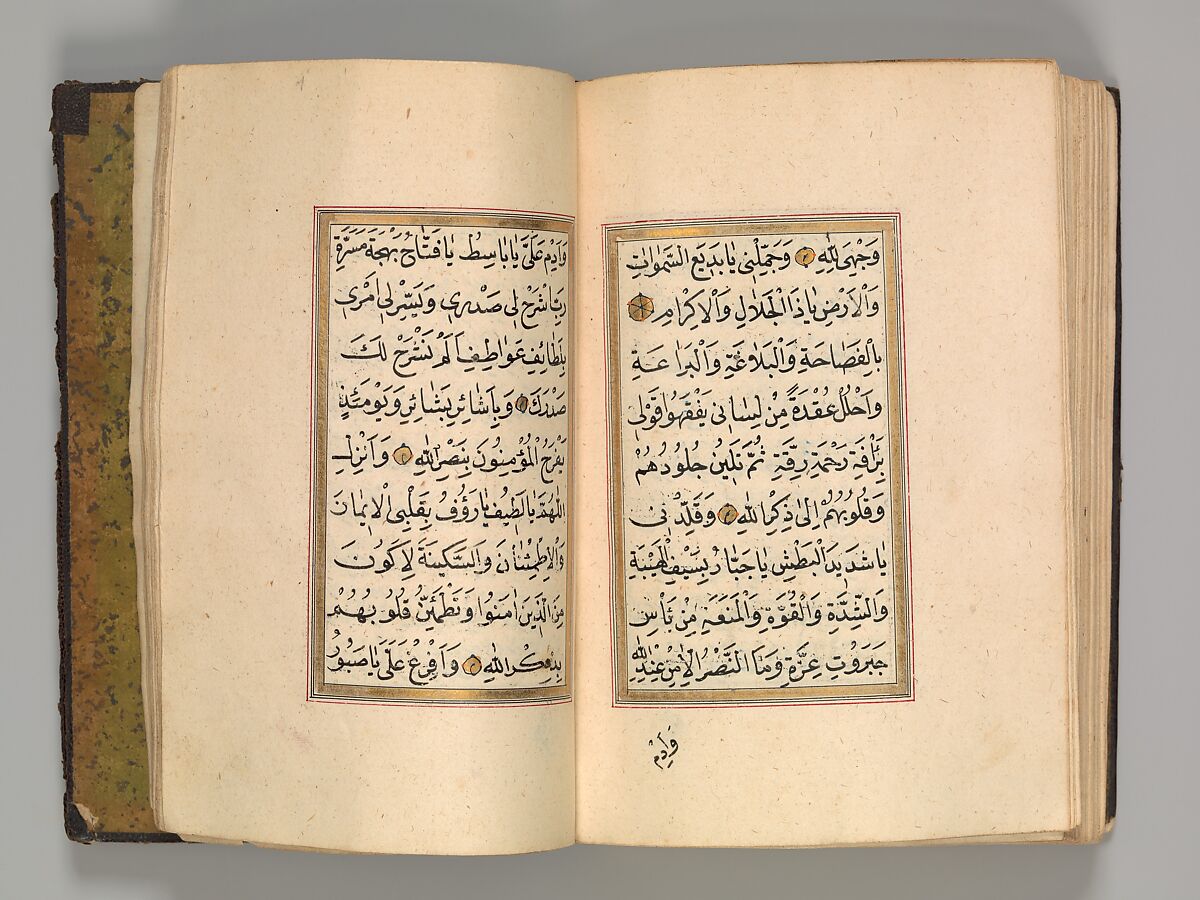 وَجْهِىَ لِلّٰهِ وَجَمِّلْنِى يَا بَدِيعَ السَّمٰوَاتِ
وَالْاَرْضِ يَا ذَا الْجَلَالِ وَالْاِكْرَامِ
بِالْفَصَاحَةِ وَالْبَلَاغَةِ وَالْبَرَاعَةِ
وَاحْلُلْ عُقْدَةً مِنْ لِسَانِى يَفْقَهُوا قَوْلِى
بِرَأْفَةِ رَحْمَةِ رِقَّةِ ثُمَّ تَلِينُ جُلُودُهُمْ
وَقُلُوبُهُمْ اِلٰى ذِكْرِ اللّٰهِ وَقَلِّدْنِى
يَا شَدِيدَ الْبَطْشِ يَا جَبَّارُ بِسَيْفِ الْهَيْبَةِ
وَالشِّدَّةِ وَالْقُوَّةِ وَالْمَنَعَةِ مِنْ بَأْسِ
جَبَرُوتِ عِزَّةِ وَمَا النَّصْرُ اِلَّا مِنْ عِنْدِ اللّٰهِ
وَاَدِمْ
وَاَدِمْ عَلَىَّ يَا بَاسِطُ يَا فَتَّاحُ بَهْجَةَ مَسَرَّةِ
رَبِّ اشْرَحْ لِى صَدْرِى وَيَسِّرْ لِى اَمْرِى
بِلَطَائِفِ عَوَاطِفِ اَلَمْ نَشْرَحْ لَكَ
صَدْرَكَ وَبِاَشَائِرِ بَشَائِرِ وَيَوْمَئِذٍ
يَفْرَحُ الْمُؤْمِنُونَ بِنَصْرِ اللّٰهِ وَاَنْزِلِ
اللّٰهُمَّ يَا لَطِيفُ يَا رَؤُفُ بِقَلْبِى الْاِيمَانَ
وَالْاِطْمِئْنَانَ وَالسَّكِينَةَ لِاَكُونَ
مِنَ الَّذِينَ اٰمَنُوا وَتَطْمَئِنُّ قُلُوبُهُمْ
بِذِكْرِ اللّٰهِ وَاَفْرِغْ عَلَىَّ يَا صَبُورُ